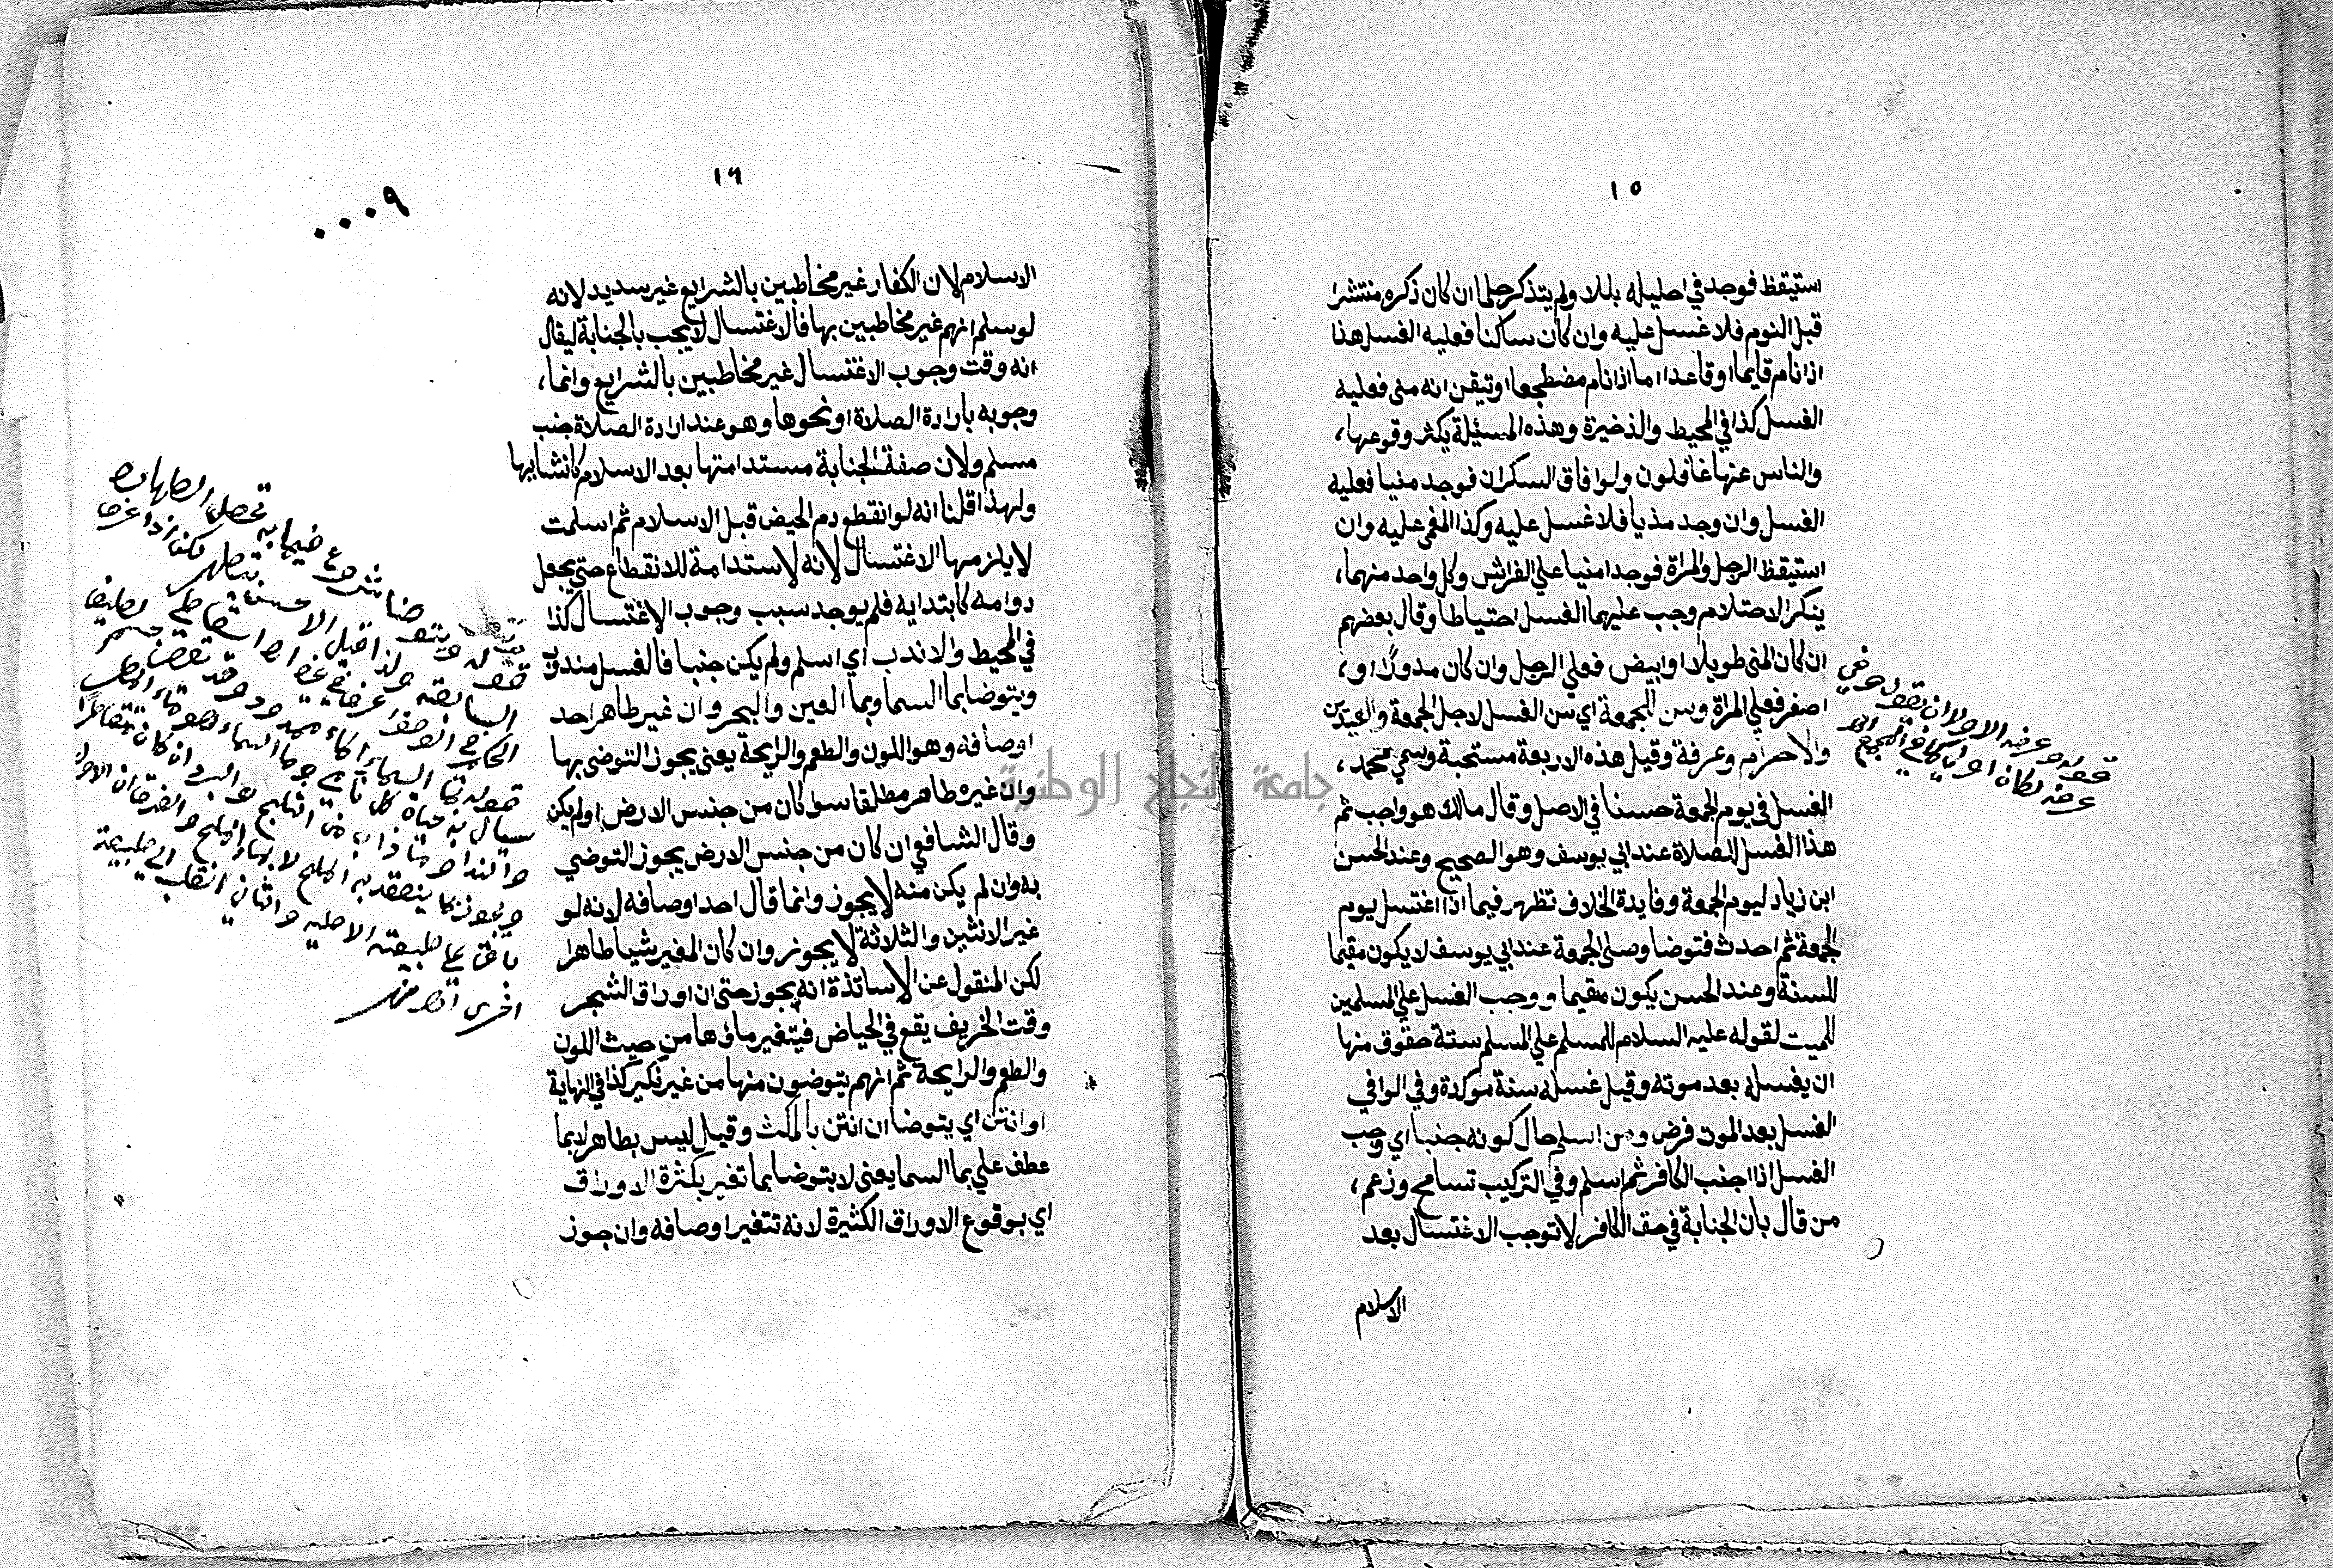 ١٥
استيقظ فوجد في احليله بللا ولم يتذكر حلما ان كان ذكره منتشرا
قبل النوم فلا غسل عليه وان كان ساكنا فعليه الغسل هذا
اذا نام قايما او قاعدا اما اذا نام مضطجعا او تيقن انه منى فعليه
الغسل كذا في المحيط والذخيرة وهذه المسئلة يكثر وقوعها،
والناس عنها غافلون ولو افاق السكران فوجد منيا فعليه
الغسل وان وجد مذيا فلا غسل عليه وكذا المغمى عليه وان
استيقظ الرجل والمراة فوجدا منيا علي الفراش وكل واحد منهما،
ينكر الاحتلام وجب عليهما الغسل احتياطا وقال بعضهم
ان كان المنى طويلا او ابيض فعلي الرجل وان كان مدورا او،
اصفر فعلي المراة وسن للجمعة اي سن الغسل لاجل الجمعة والعيدين
والاحرام وعرفة وقيل هذه الاربعة مستحبة وسمي محمد،
الغسل في يوم الجمعة حسنا في الاصل وقال مالك هو واجب ثم
هذا الغسل للصلاة عند ابي يوسف وهو الصحيح وعند الحسن
ابن زياد ليوم الجمعة وفايدة الخلاف تظهر فيما اذا اغتسل يوم
الجمعة ثم احدث فتوضا وصلى الجمعة عند ابي يوسف لا يكون مقيما
للسنة وعند الحسن يكون مقيما ووجب الغسل علي المسلمين
للميت لقوله عليه السلام للمسلم علي المسلم ستة حقوق منها
ان يغسله بعد موته وقيل غسله سنة موكدة وفي الوافي
الغسل بعد الموت فرض ومن اسلم حال كونه جنبا اي وجب
الغسل اذا اجنب الكافر ثم اسلم وفي التركيب تسامح وزعم،
من قال بان الجنابة في حق الكافر لا توجب الاغتسال بعد
الاسلام
١٦
٠٠٠٩
الاسلام لان الكفار غير مخاطبين بالشرايع غير سديد لانه
لو سلم انهم غير مخاطبين بها فالاغتسال لا يجب بالجنابة ليقال
انه وقت وجوب الاغتسال غير مخاطبين بالشرايع وانما،
وجوبه بارادة الصلاة او نحوها وهو عند ارادة الصلاة جنب
مسلم ولان صفة الجنابة مستدامتها بعد الاسلام كانشايها
ولهذا قلنا انه لو انقطع دم الحيض قبل الاسلام ثم اسلمت
لا يلزمها الاغتسال لانه لا استدامة للانقطاع حتى يجعل
دوامه كابتدايه فلم يوجد سبب وجوب الاغتسال كذا
في المحيط والا ندب اي اسلم ولم يكن جنبا فالغسل مندوب
ويتوضا بما السما وبما العين والبحر وان غير طاهر احد
اوصافه وهو اللون والطعم والرايحة يعنى يجوز التوضى بها
وان غيره طاهر مطلقا سوا كان من جنس الارض او لم يكن
وقال الشافعي ان كان من جنس الارض يجوز التوضي
به وان لم يكن منه لا يجوز وانما قال احد اوصافه لانه لو
غير الاثنين والثلاثة لا يجوز وان كان المغير شيا طاهرا
لكن المنقول عن الاساتذة انه يجوز حتى ان اوراق الشجر
وقت الخريف يقع في الحياض فيتغير ماؤها من حيث اللون
والطعم والرايحة ثم انهم يتوضون منها من غير نكير كذا في النهاية
او انتن اي يتوضا ان انتن بالمكث وقيل ليس بطاهر لا بما
عطف علي بما السما يعنى لا يتوضا بما تغير بكثرة الاوراق
اي بوقوع الاوراق الكثيرة لانه تتغير اوصافه وان جوز
جامعة النجاح الوطنية